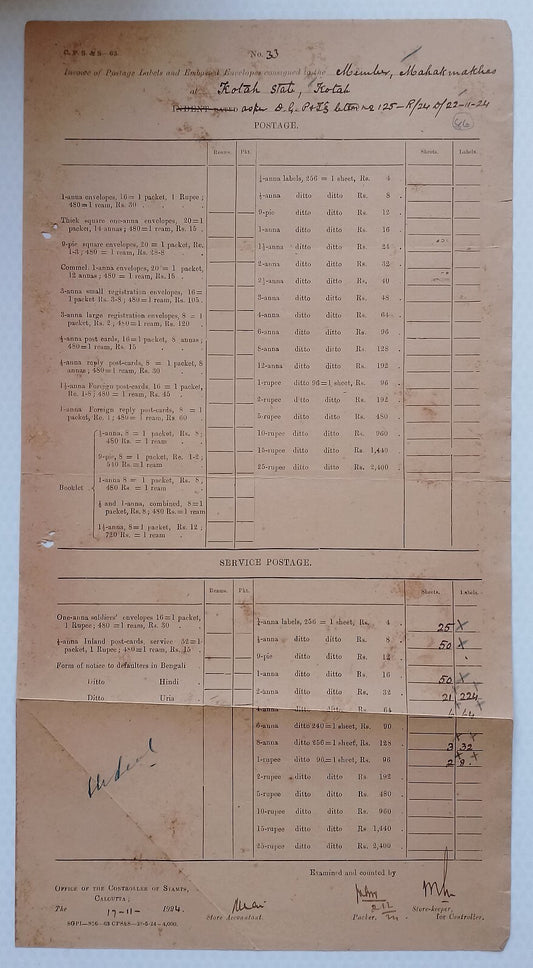 C. P. S. & S—63
No. 33
Invoice of Postage Labels and Embossed Envelopes consigned to the Member, Mahakmakhas
at Kotah State, Kotah
INDENT DATED as per D. G. P & T's letter No 125-R/24 D/22-11-24
POSTAGE.
Reams. Pkt. Sheets. Labels.
1-anna envelopes, 16=1 packet, 1 Rupee;
480=1 ream, Rs. 30
Thick square one-anna envelopes, 20=1
packet, 14 annas; 480=1 ream, Rs. 15
9-pie square envelopes, 20 = 1 packet, Re.
1-3; 480 = 1 ream, Rs. 28-8
Commel. 1-anna envelopes, 20 = 1 packet,
12 annas; 480 = 1 ream, Rs. 15
3-anna small registration envelopes, 16=
1 packet Rs. 3-8; 480=1 ream, Rs. 105
3-anna large registration envelopes, 8 = 1
packet, Rs. 2; 480=1 ream, Rs. 120
½-anna post cards, 16=1 packet, 8 annas;
480=1 ream, Rs. 15
½-anna reply post-cards, 8 = 1 packet, 8
annas; 480 = 1 ream, Rs. 30
1½-anna Foreign post-cards, 16 = 1 packet,
Re. 1-8; 480 = 1 ream, Rs. 45
1-anna Foreign reply post-cards, 8 = 1
packet, Re. 1; 480 = 1 ream, Rs 60
Booklet
½-anna, 8 = 1 packet, Rs. 8;
480 Rs. = 1 ream
9-pie, 8 = 1 packet, Re. 1-2;
540 Rs. = 1 ream
1-anna 8 = 1 packet, Rs. 8,
480 Rs. = 1 ream
½ and 1-anna, combined, 8=1
packet, Rs. 8; 480 Rs.=1 ream
1½-anna, 8=1 packet, Rs. 12;
720 Rs. = 1 ream
¼-anna labels, 256 = 1 sheet, Rs. 4
½-anna ditto ditto Rs. 8
9-pie ditto ditto Rs. 12
1-anna ditto ditto Rs. 16
1½-anna ditto ditto Rs. 24
2-anna ditto ditto Rs. 32
2½-anna ditto ditto Rs. 40
3-anna ditto ditto Rs. 48
4-anna ditto ditto Rs. 64
6-anna ditto ditto Rs. 96
8-anna ditto ditto Rs. 128
12-anna ditto ditto Rs. 192
1-rupee ditto 96=1 sheet, Rs. 96
2-rupee ditto ditto Rs. 192
5-rupee ditto ditto Rs. 480
10-rupee ditto ditto Rs. 960
15-rupee ditto ditto Rs. 1,440
25-rupee ditto ditto Rs. 2,400
SERVICE POSTAGE.
Reams. Pkt. Sheets. Labels.
One-anna soldiers' envelopes 16=1 packet,
1 Rupee; 480 = 1 ream, Rs. 30
½-anna Inland post-cards, service 32=1
packet, 1 Rupee; 480=1 ream, Rs. 15
Form of notice to defaulters in Bengali
Ditto Hindi
Ditto Uria
¼-anna labels, 256 = 1 sheet, Rs. 4 25 X
½-anna ditto ditto Rs. 8 50 X
9-pie ditto ditto Rs. 12
1-anna ditto ditto Rs. 16 50 X
2-anna ditto ditto Rs. 32 21 224
4-anna ditto ditto Rs. 64
6-anna ditto 240=1 sheet, Rs. 90
8-anna ditto 256=1 sheet, Rs. 128 3 32
1-rupee ditto 96=1 sheet, Rs. 96 2 8
2-rupee ditto ditto Rs 192
5-rupee ditto ditto Rs. 480
10-rupee ditto ditto Rs. 960
15-rupee ditto ditto Rs 1,440
25-rupee ditto ditto Rs. 2,400
Examined and counted by
OFFICE OF THE CONTROLLER OF STAMPS,
CALCUTTA;
The 17-11- 1924.
Store Accountant.
Packer.
Store-keeper,
for Controller.